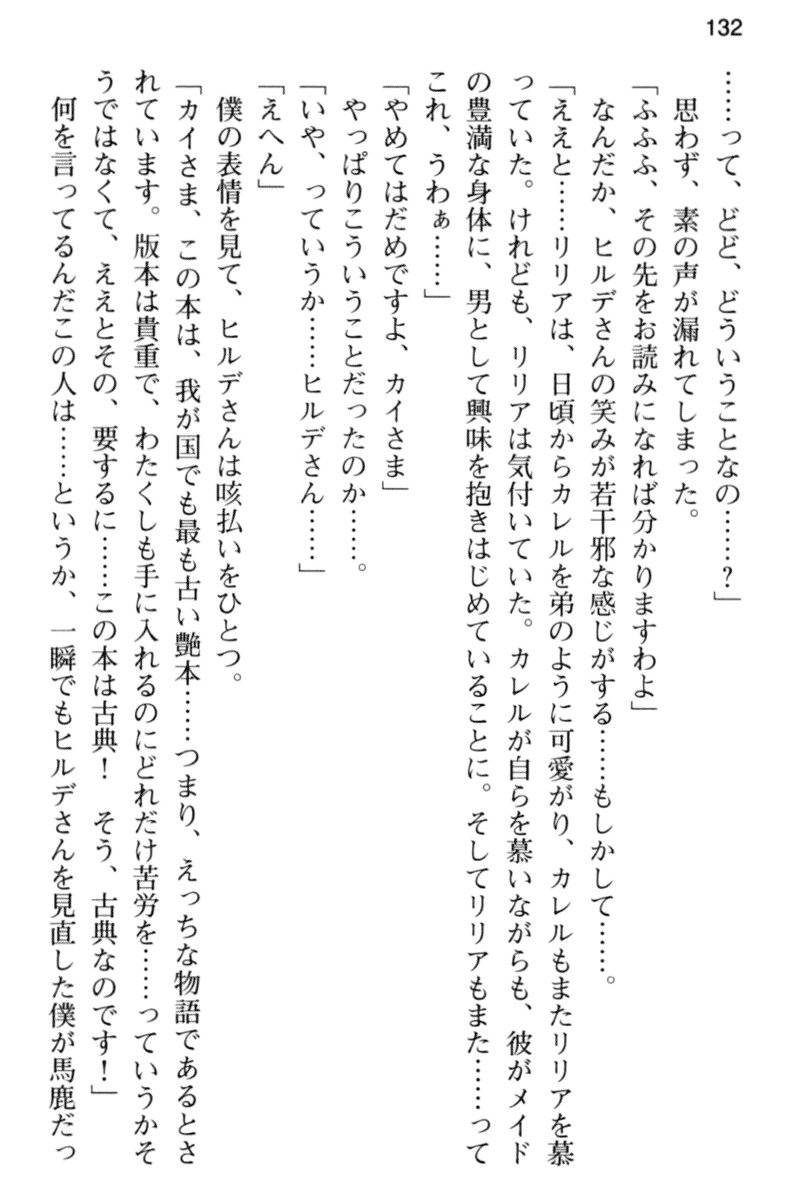 132
……って、どど、どういうことなの……?」
　思わず、素の声が漏れてしまった。
「ふふふ、その先をお読みになれば分かりますわよ」
　なんだか、ヒルデさんの笑みが若干邪な感じがする……もしかして……。
「ええと……リリアは、日頃からカレルを弟のように可愛がり、カレルもまたリリアを慕
っていた。けれども、リリアは気付いていた。カレルが自らを慕いながらも、彼がメイド
の豊満な身体に、男として興味を抱きはじめていることに。そしてリリアもまた……って
これ、うわぁ……」
「やめてはだめですよ、カイさま」
　やっぱりこういうことだったのか……。
「いや、っていうか……ヒルデさん……」
「えへん」
　僕の表情を見て、ヒルデさんは咳払いをひとつ。
「カイさま、この本は、我が国でも最も古い艶本……つまり、えっちな物語であるとさ
れています。版本は貴重で、わたくしも手に入れるのにどれだけ苦労を……っていうかそ
うではなくて、ええとその、要するに……この本は古典!　そう、古典なのです!」
　何を言ってるんだこの人は……というか、一瞬でもヒルデさんを見直した僕が馬鹿だっ